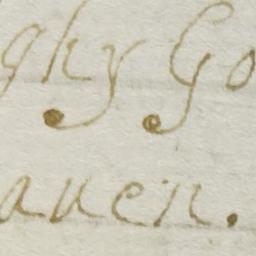 ghy Go
auen.